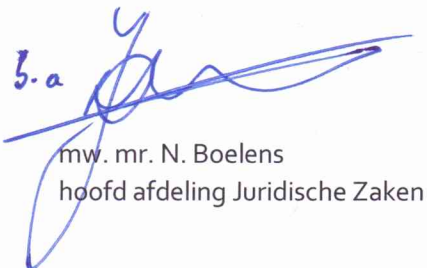 b.a
mw. mr. N. Boelens
hoofd afdeling Juridische Zaken